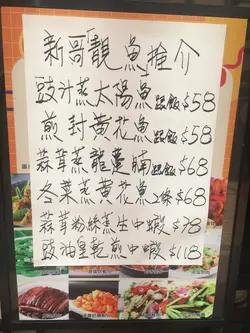 新哥靚魚推介
豉汁蒸太陽魚跟飯$58
煎封黃花魚跟飯$58
蒜茸蒸龍躉腩跟飯$68
冬菜蒸黃花魚2條$68
蒜茸粉絲蒸生中蝦$78
豉油皇乾煎中蝦$118